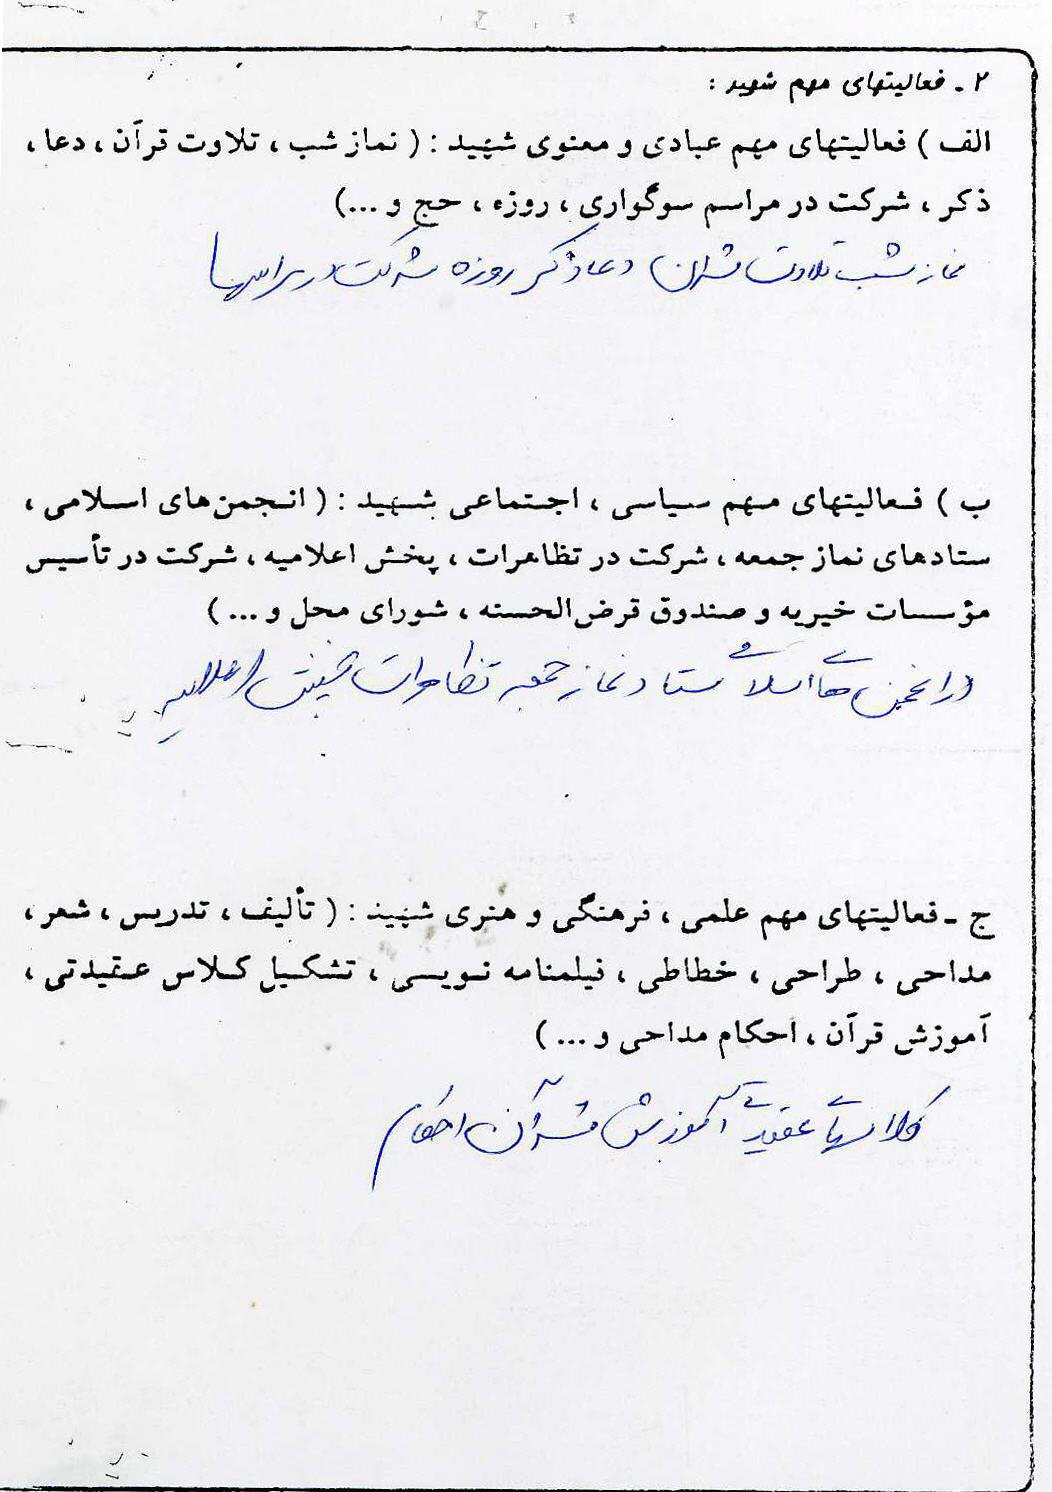 ۲ ـ فعالیتهای مهم شهید :
الف ) فعالیتهای مهم عبادی و معنوی شهید : ( نماز شب ، تلاوت قرآن ، دعا ،
ذکر ، شرکت در مراسم سوگواری ، روزه ، حج و ...)
نماز شب تلاوت قرآن دعا ذکر روزه شرکت در مراسمها
ب ) فعالیتهای مهم سیاسی ، اجتماعی شهید : ( انجمن‌های اسلامی ،
ستادهای نماز جمعه ، شرکت در تظاهرات ، پخش اعلامیه ، شرکت در تأسیس
مؤسسات خیریه و صندوق قرض‌الحسنه ، شورای محل و ... )
در انجمن های اسلامی ستاد نماز جمعه تظاهرات پخش اعلامیه
ج ـ فعالیتهای مهم علمی ، فرهنگی و هنری شهید : ( تألیف ، تدریس ، شعر ،
مداحی ، طراحی ، خطاطی ، فیلمنامه نویسی ، تشکیل کلاس عقیدتی ،
آموزش قرآن ، احکام مداحی و ... )
کلاسهای عقیدتی آموزش قرآن احکام